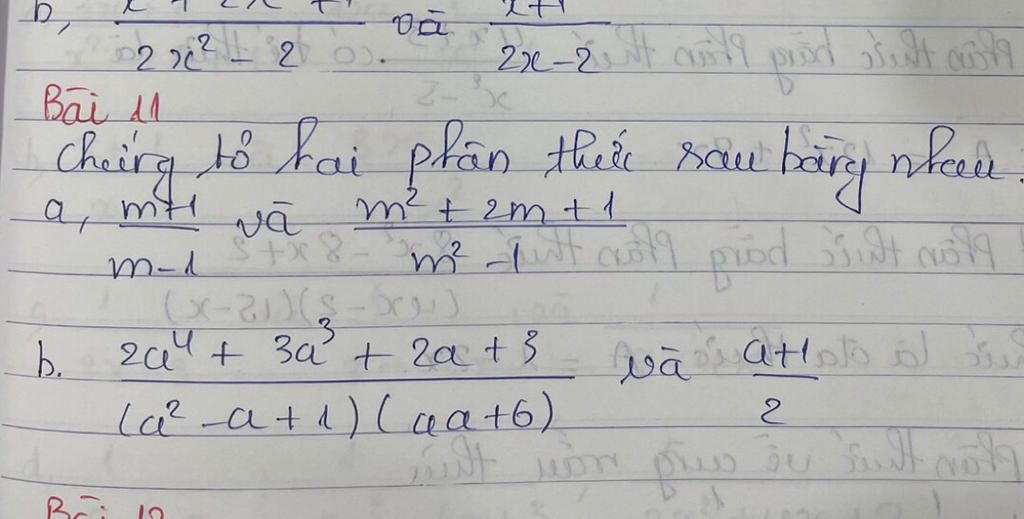 b, x² + 2x + 1 / 2x² - 2 và x+1 / 2x-2
Bài 11
Chứng tỏ hai phân thức sau bằng nhau.
a, m+1 / m-1 và m² + 2m + 1 / m² - 1
b. 2a⁴ + 3a³ + 2a + 3 / (a² - a + 1)(4a+6) và a+1 / 2